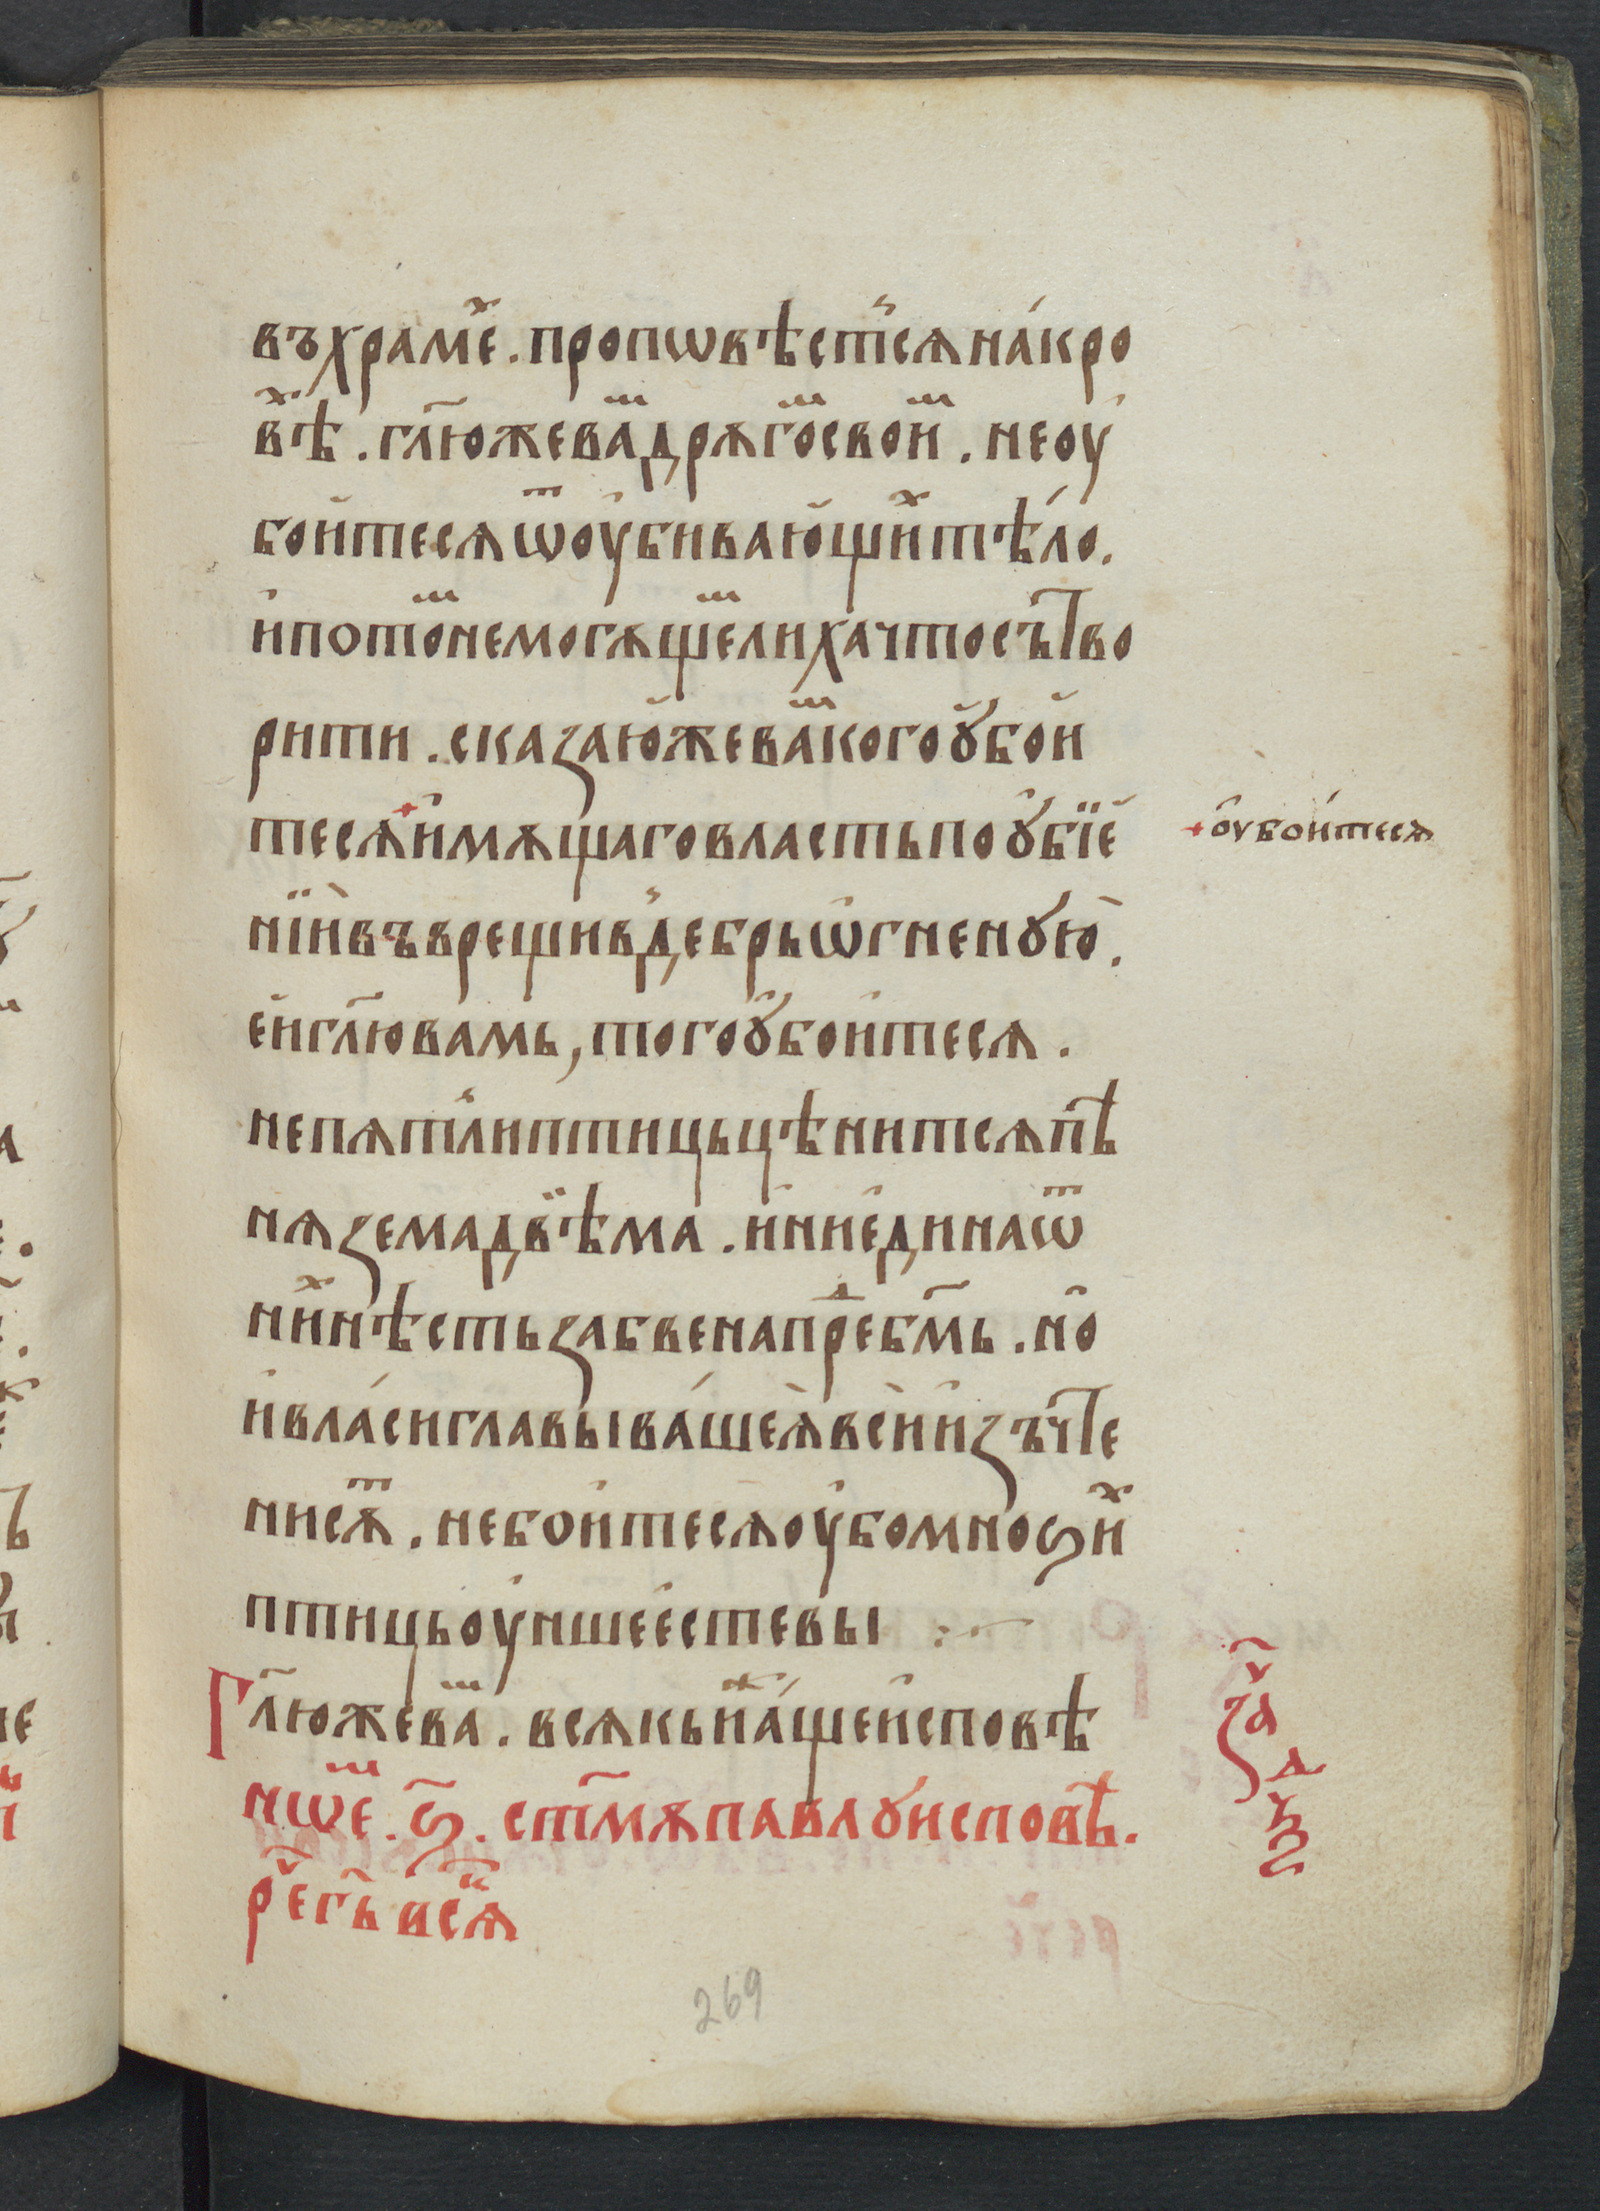 въ храме҆ⷯ . проповѣстⷭ҇ѧ на́кро
вѣⷯ . гл҃ю же ваⷨ дрꙋгоⷨ своиⷨ . не оу҆
бои҆тесѧ ѿ оу҆биваю҆щиⷯ тѣ́ло .
и҆ потоⷨ не могꙋщеⷨ лиха что сътво
рити . сказаю҆ же ваⷨ кого ᲂу҆бои
тесѧ + и҆мꙋщаго власть по ᲂу҆бїе҆
нїи҆ въврещи вⸯдебрь ѡ҆гненꙋю҆ .
е҆и гл҃ю вамь , того ᲂу҆бои҆тесѧ .
не пѧт ли птиць цѣнитсѧ пѣ
нѧзема двѣма . и҆ ни е҆дина ѿ
ниⷯ нѣсть забвена преⷣ бг҃мь . но҆
и҆ вла́си главы ва́шеѧ҆ вси и҆зъчте
ни сѧⷮ . не бои҆тесѧ оу҆бо мноѕиⷯ
птиць оу҆ншее҆ е҆сте вы :~
Гл҃ю же ваⷨ . всѧкь и҆ⷤ а́ще и҆сповѣ
нѡⷨе . ѕ҃ . ст҃мꙋ павлꙋ исповѣ .
рⷱе гь всѧⷨ
+ оу҆бои́тесѧ
заⷱ
ѯ҃дⷣ
269